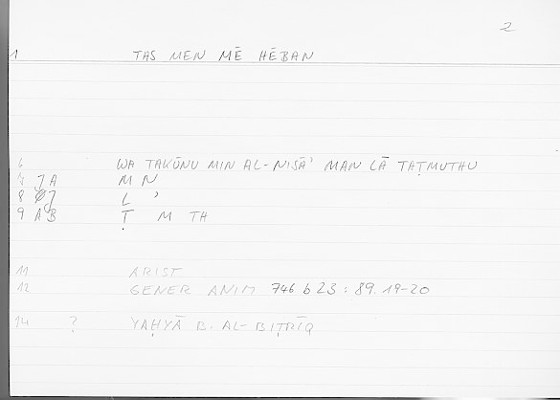 2
1 TAS MEN MĒ HĒBAN
6 WA TAKŪNU MIN AL-NISĀʾ MAN LĀ TAṬMUTHU
7 JA M N
8 L ʾ
9 AB Ṭ M TH
11 ARIST
12 GENER ANIM 746 b 23 : 89.19-20
14 ? YAḤYĀ B. AL-BIṬRĪQ